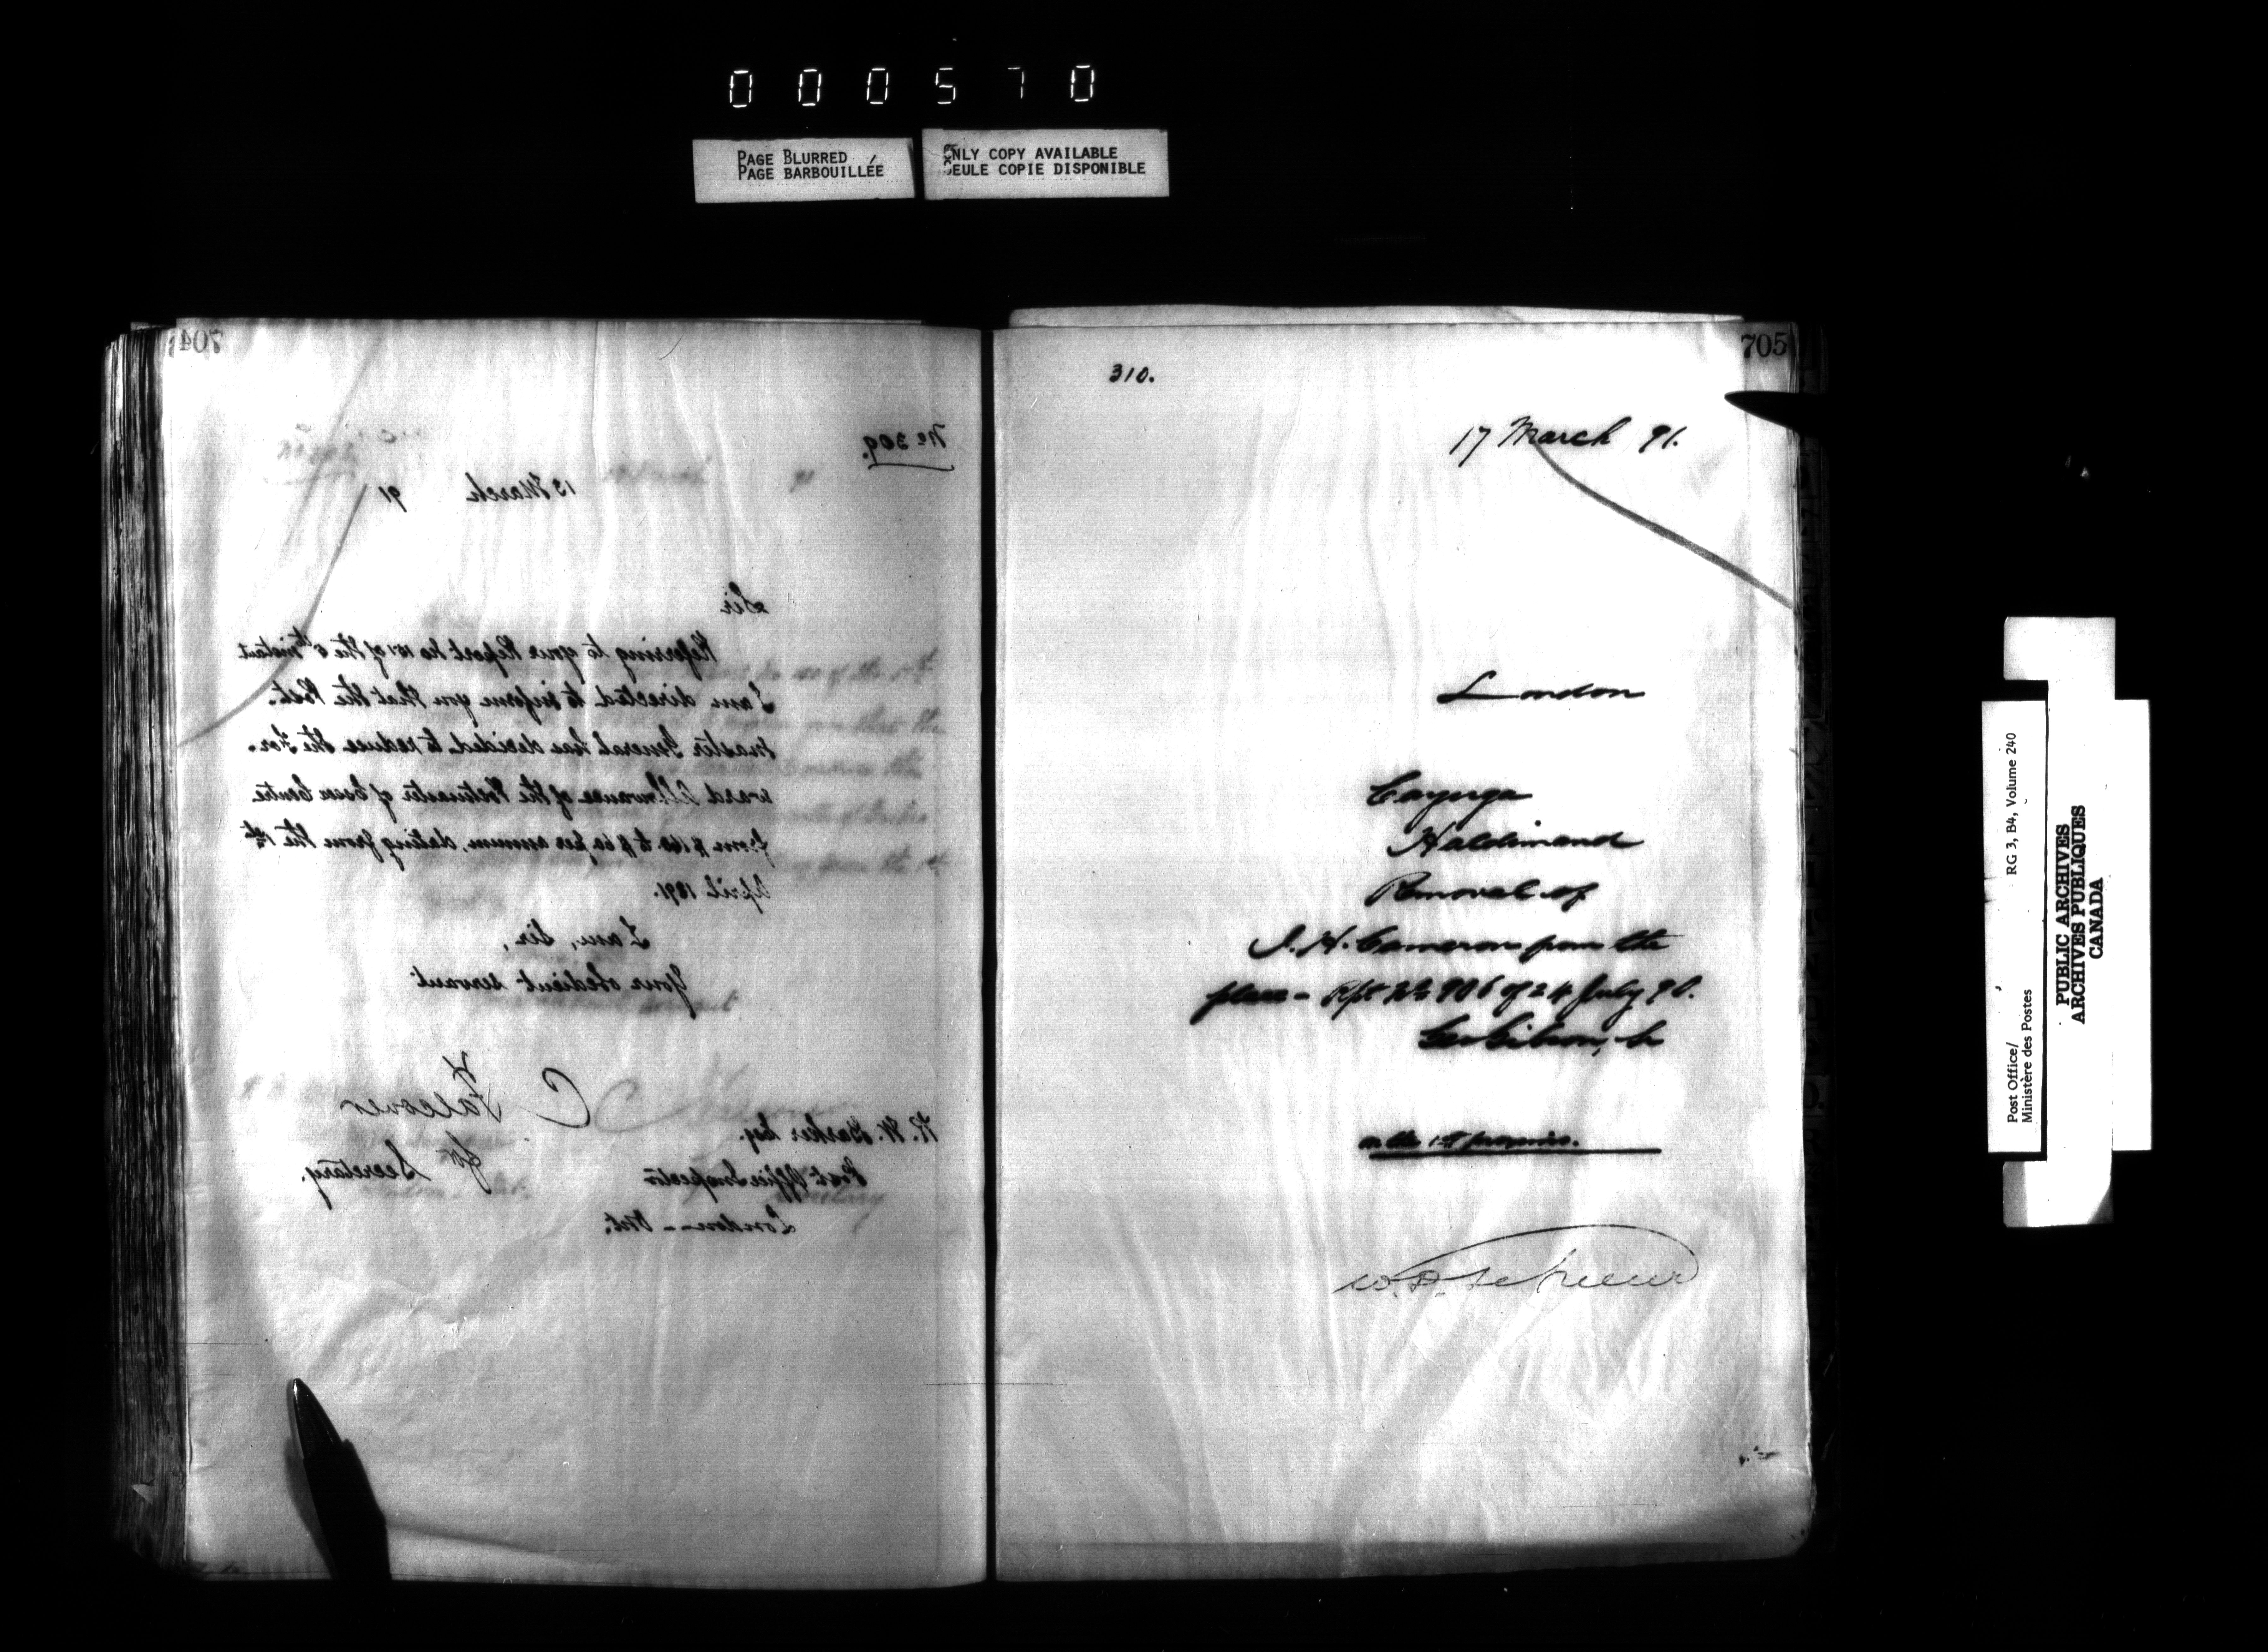 000570
PAGE BLURRED
PAGE BARBOUILLÉE
ONLY COPY AVAILABLE
SEULE COPIE DISPONIBLE
704
No 309.
13 March 91
Sir
Referring to your Report no 151 of the 6th instant
I am directed to inform you that the Post.
master General has decided to reduce the For-
ward Allowance of the Postmaster of Essex Centre
from $ 160 to $ 60 per annum, dating from the 1st
April 1891.
I am, Sir,
Your obedient servant
C Falconer
for Secretary.
R. W. Barker Esq.
Post Office Inspector
London - Ont.
705
310.
17 March 91.
London
Cayuga
Haldimand
Removal of
J. H. Cameron from the
place - Rpt No 906 of 24 July 90.
on the 1st proximo.
Post Office/
Ministère des Postes
RG 3, B4, Volume 240
PUBLIC ARCHIVES
ARCHIVES PUBLIQUES
CANADA